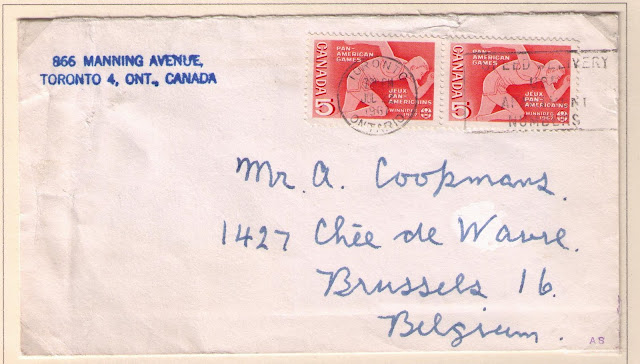 866 MANNING AVENUE,
TORONTO 4, ONT., CANADA
CANADA 5
PAN-
AMERICAN
GAMES
JEUX
PAN-
AMERICAINS
WINNIPEG
1967
CANADA 5
PAN-
AMERICAN
GAMES
JEUX
PAN-
AMERICAINS
WINNIPEG
1967
TORONTO
ONTARIO
NUMBERS
Mr. A. Coopmans.
1427 Chée de Wavre.
Brussels 16.
Belgium.
AS